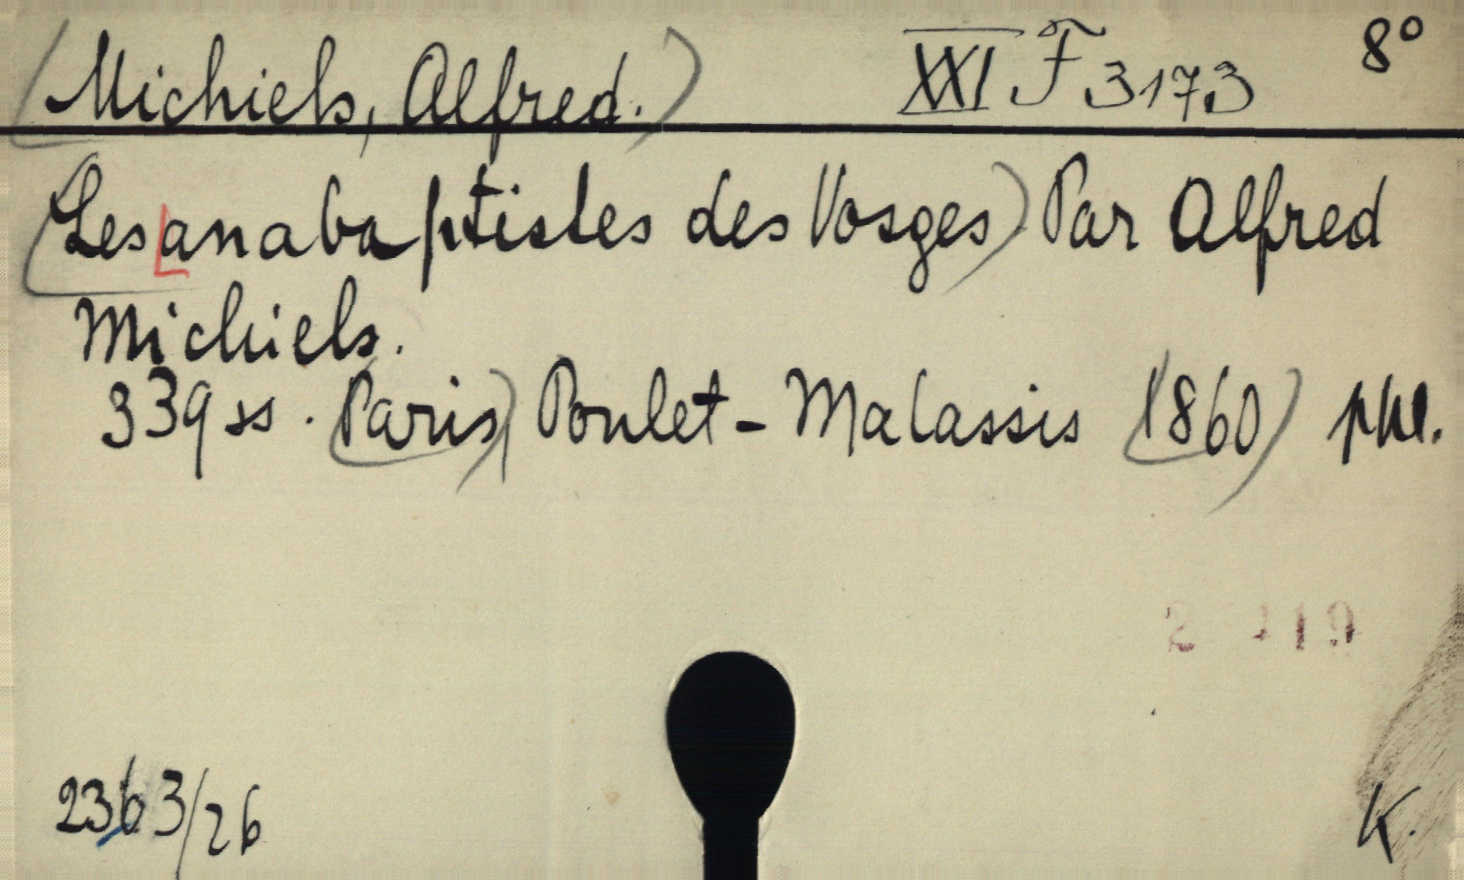 (Michiels, Alfred.) XXI F 3173 8°
(Les anabaptistes des Vosges) Par Alfred
Michiels.
339 ss. (Paris) Poulet-Malassis (1860) pul.
2363/26
K.